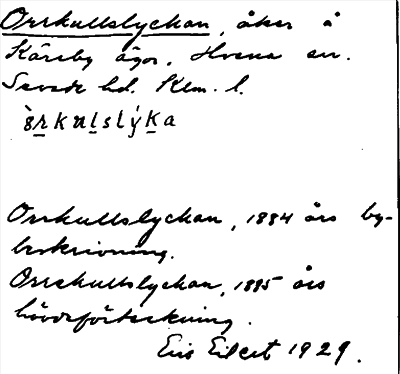 Orrkullslyckan, åker å
Kåreby ägor, Hvena sn.
Sevede hd. Klm. l.
òrkulslýka
Orrkullslyckan, 1884 års by-
beskrivning.
Orrekullslyckan, 1885 års
hävdeförteckning.
Eric Eilert 1929.